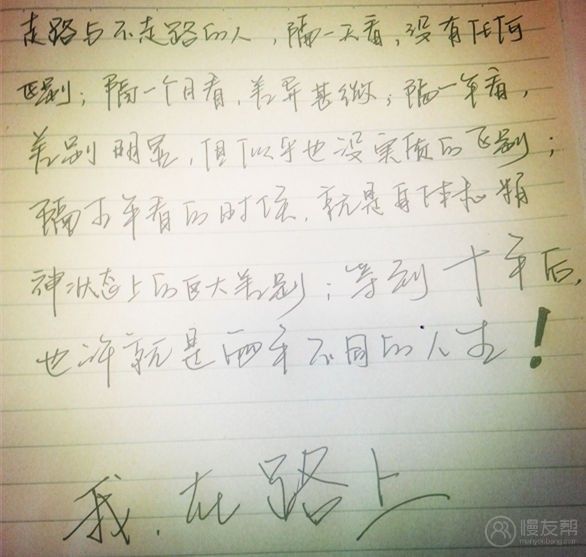 走路与不走路的人，隔一天看，没有任何
区别；隔一个月看，差异甚微；隔一年看，
差别明显，但似乎也没实质的区别；
隔五年看的时候，就是身体和精
神状态上的巨大差别；等到十年后，
也许就是两种不同的人生！
我，在路上
慢友帮
manyoubang.com